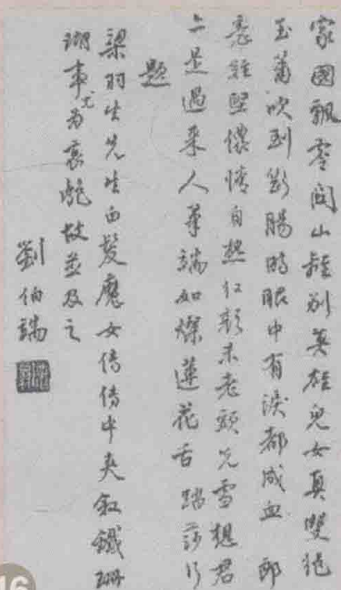 家國飄零關山輕別英雄兒女真雙絕
玉簫吹到斷腸時眼中有淚都成血 郎
意難堅儂情自熱紅顏未老頭先雪想君
亦是過來人筆端如燦蓮花舌 踏莎行
題
梁羽生先生白髮魔女傳傳中夾叙鐵珊
瑚事尤為哀艷故並及之
劉伯端
16